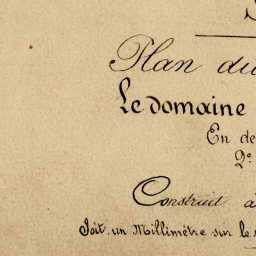 Plan du
Le domaine
En de
2e
Construit à
Soit un Millimètre sur le